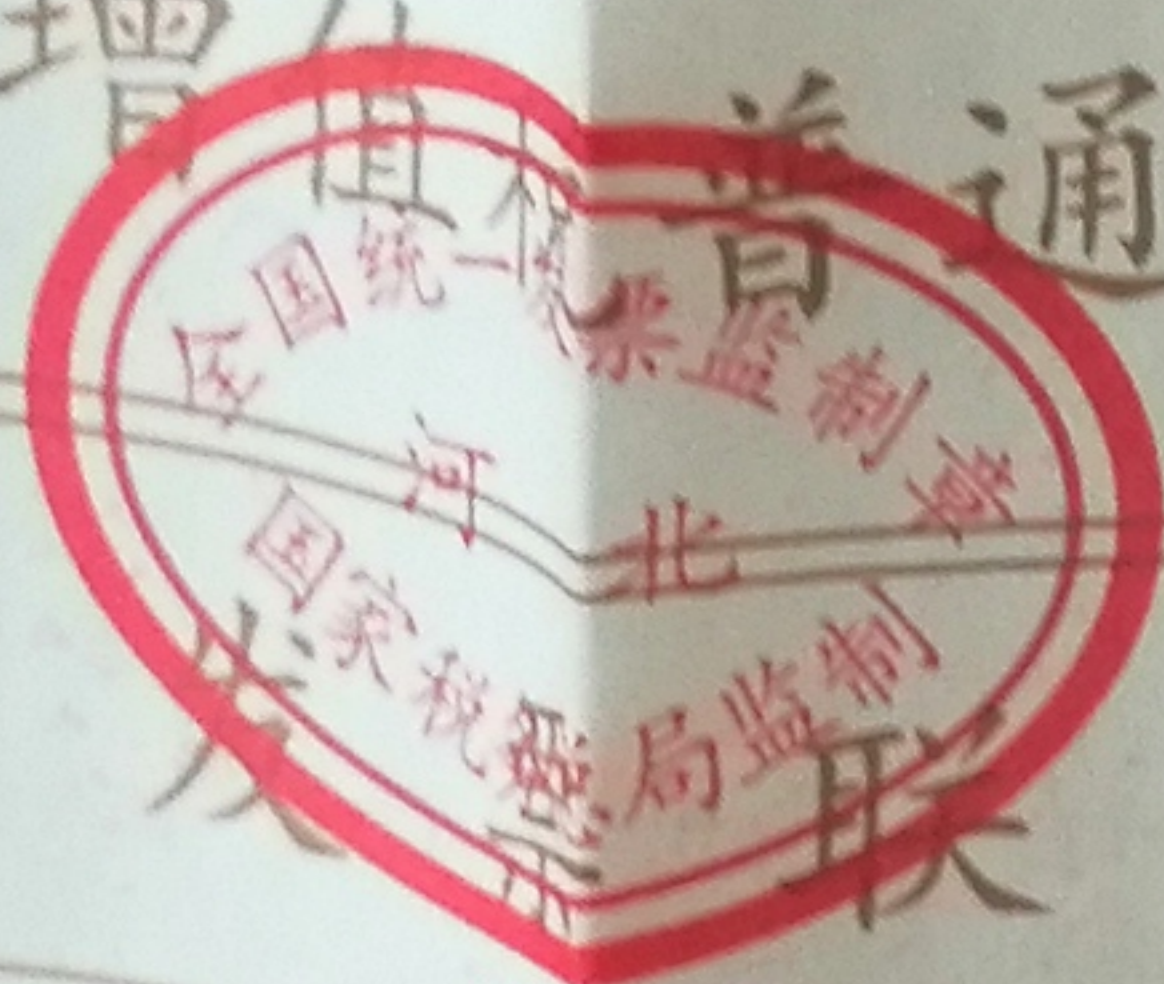 增值税普通
全国统一发票监制章
河北
国家税务局监制
发票联